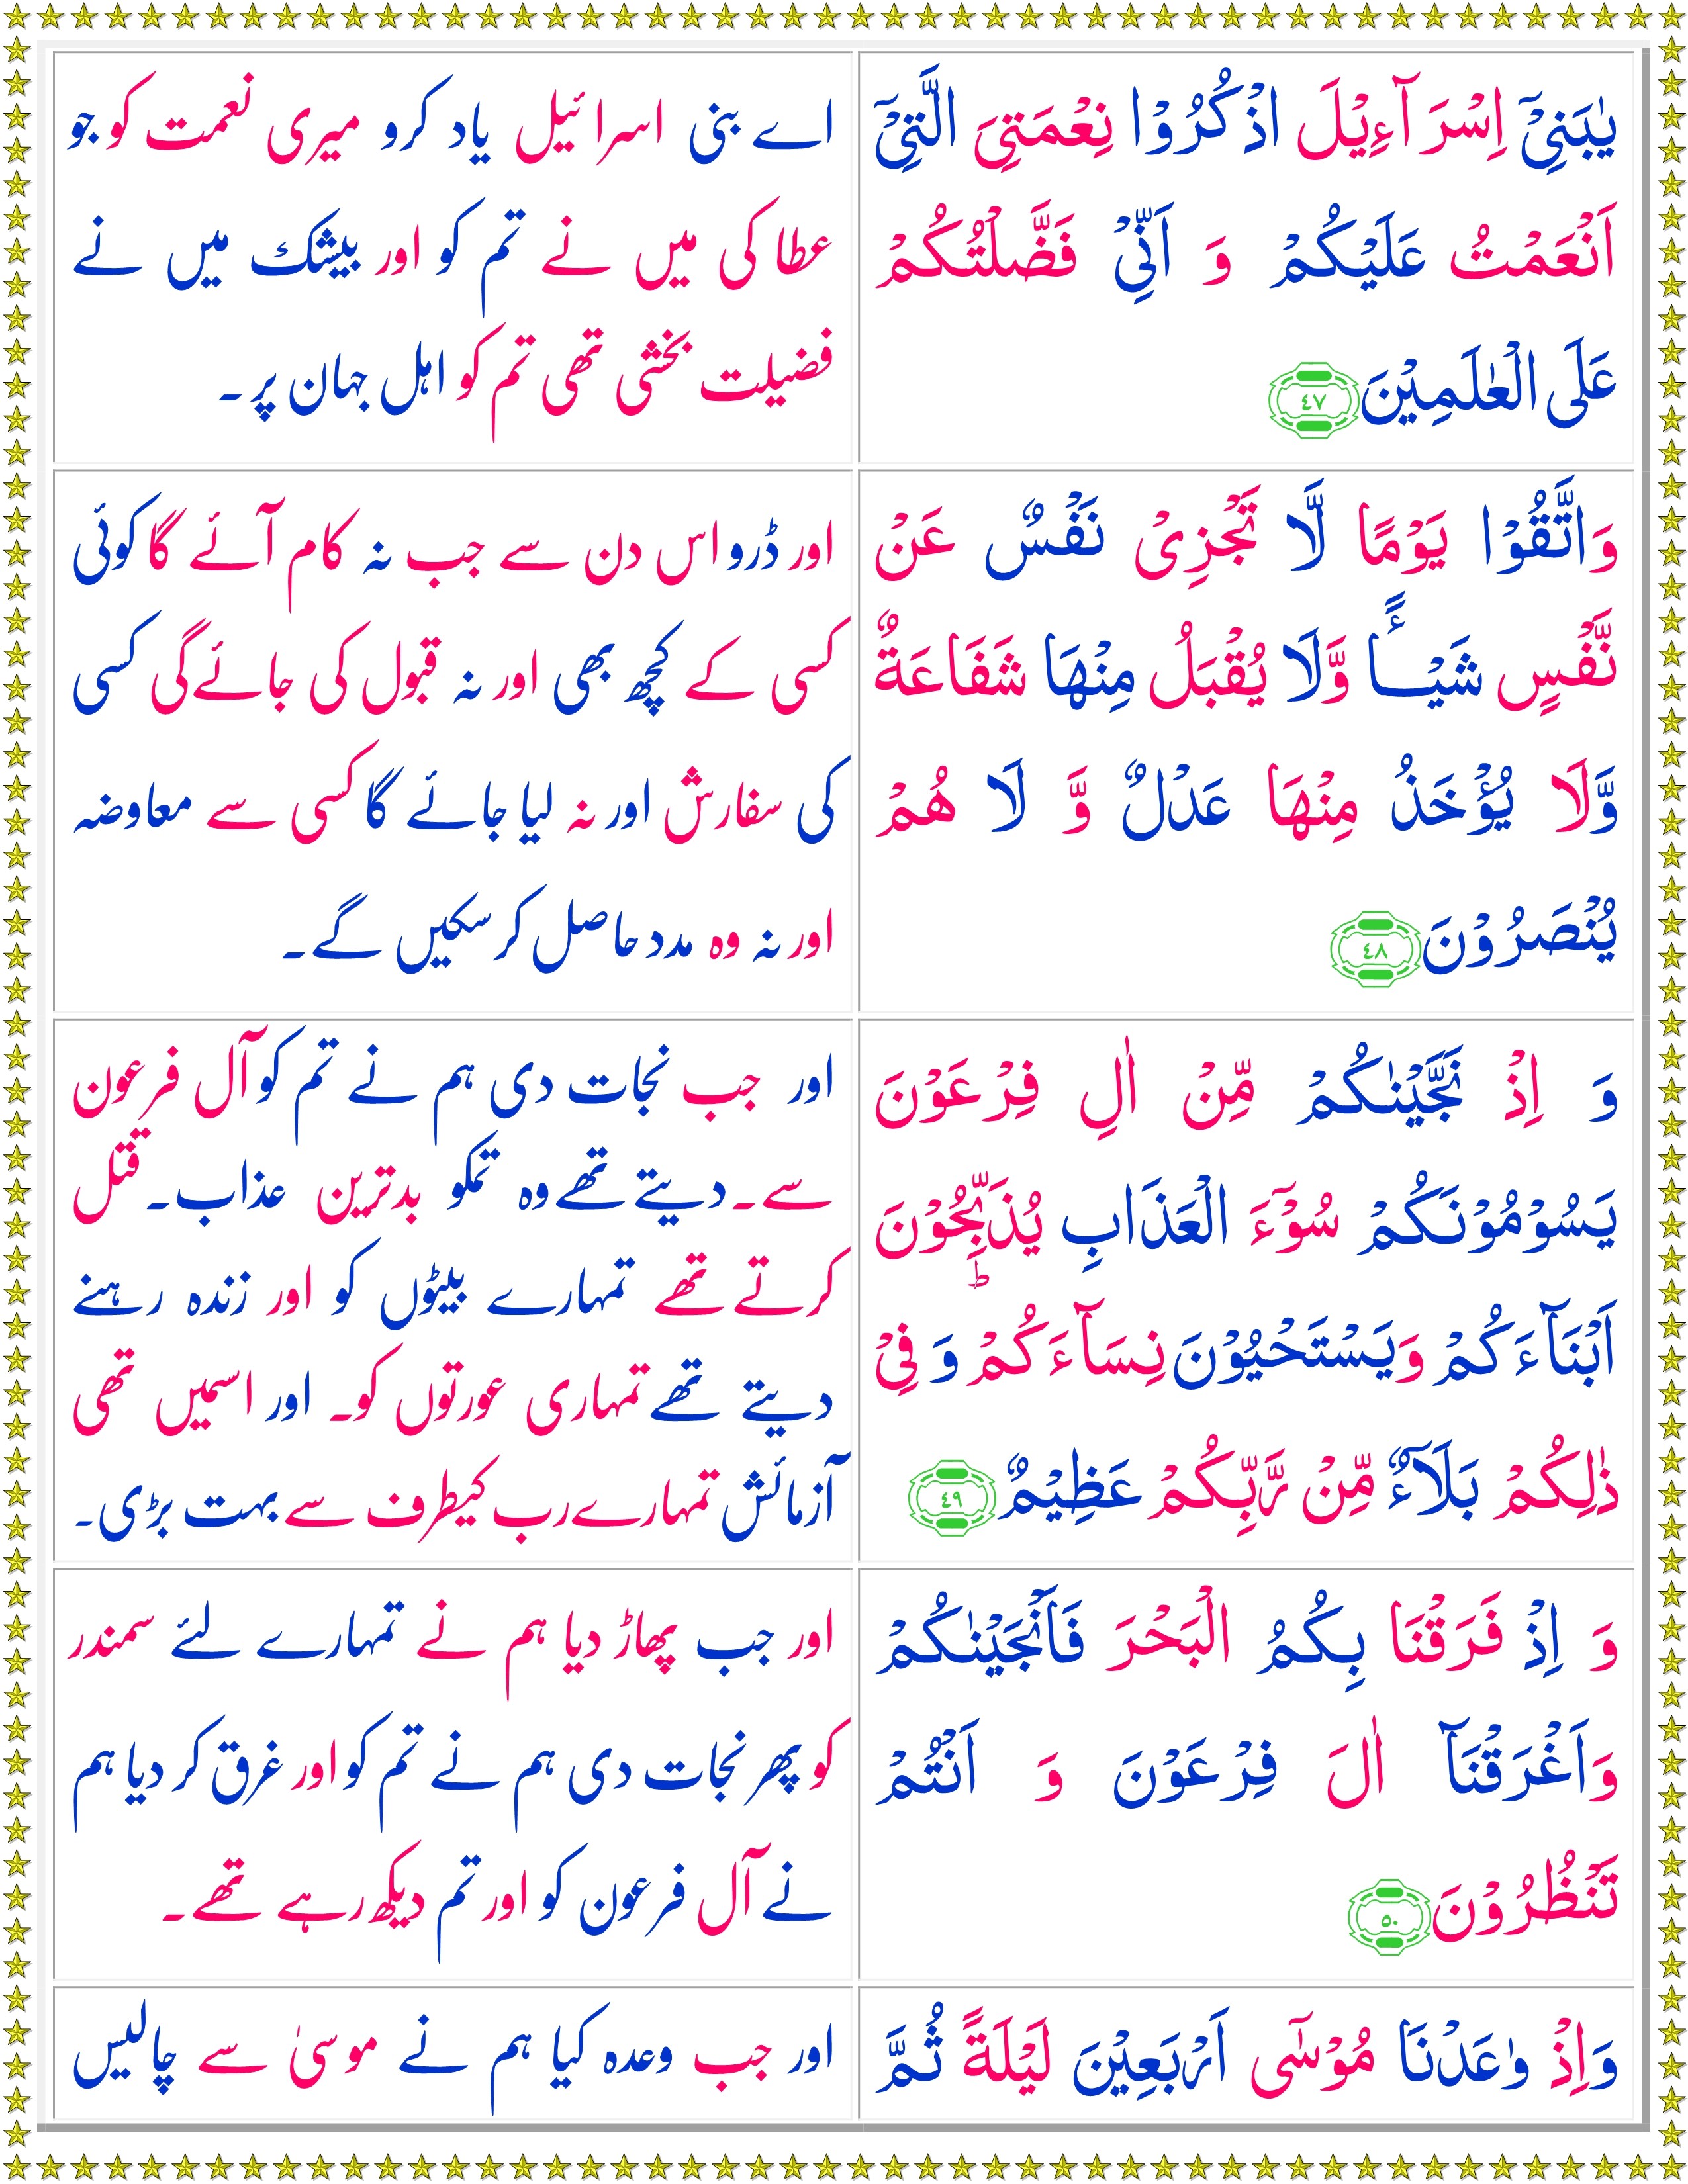 يٰبَنِىْٓ اِسْرَآءِيْلَ اذْكُرُوْا نِعْمَتِىَ الَّتِىْٓ
اَنْعَمْتُ عَلَيْكُمْ وَ اَنِّىْ فَضَّلْتُكُمْ
عَلَى الْعٰلَمِيْنَ ﴿٤٧﴾
اے بنی اسرائیل یاد کرو میری نعمت کو جو
عطا کی میں نے تم کو اور بیشک میں نے
فضیلت بخشی تھی تم کو اہل جہان پر۔
وَاتَّقُوْا يَوْمًا لَّا تَجْزِىْ نَفْسٌ عَنْ
نَّفْسٍ شَيْـــًٔا وَّلَا يُقْبَلُ مِنْهَا شَفَاعَةٌ
وَّلَا يُؤْخَذُ مِنْهَا عَدْلٌ وَّ لَا هُمْ
يُنْصَرُوْنَ ﴿٤٨﴾
اور ڈرو اس دن سے جب نہ کام آئے گا کوئی
کسی کے کچھ بھی اور نہ قبول کی جائے گی کسی
کی سفارش اور نہ لیا جائے گا کسی سے معاوضہ
اور نہ وہ مدد حاصل کر سکیں گے۔
وَ اِذْ نَجَّيْنٰکُمْ مِّنْ اٰلِ فِرْعَوْنَ
يَسُوْمُوْنَكُمْ سُوْٓءَ الْعَذَابِ يُذَبِّحُوْنَ
اَبْنَآءَكُمْ وَيَسْتَحْيُوْنَ نِسَآءَكُمْؕ وَ فِىْ
ذٰلِكُمْ بَلَآءٌ مِّنْ رَّبِّكُمْ عَظِيْمٌ ﴿٤٩﴾
اور جب نجات دی ہم نے تم کو آل فرعون
سے۔ دیتے تھے وہ تمکو بدترین عذاب۔ قتل
کرتے تھے تمہارے بیٹوں کو اور زندہ رہنے
دیتے تھے تمہاری عورتوں کو۔ اور اسمیں تھی
آزمائش تمہارے رب کیطرف سے بہت بڑی۔
وَ اِذْ فَرَقْنَا بِكُمُ الْبَحْرَ فَاَنْجَيْنٰکُمْ
وَاَغْرَقْنَآ اٰلَ فِرْعَوْنَ وَ اَنْتُمْ
تَنْظُرُوْنَ ﴿٥٠﴾
اور جب پھاڑ دیا ہم نے تمہارے لئے سمندر
کو پھر نجات دی ہم نے تم کو اور غرق کر دیا ہم
نے آل فرعون کو اور تم دیکھ رہے تھے۔
وَاِذْ وٰعَدْنَا مُوْسٰٓى اَرْبَعِيْنَ لَيْلَةً ثُمَّ
اور جب وعدہ کیا ہم نے موسیٰ سے چالیس